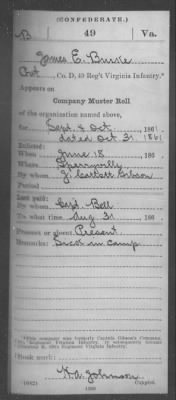 (CONFEDERATE.)
B 49 Va.
James E.
Pvt, Co. D, 49 Reg't Virginia Infantry.*
Appears on
Company Muster Roll
of the organization named above,
for Sept & Oct, 1861.
dated Oct 31, 1861
Enlisted:
When June 18, 186 .
Where Sperryville
By whom J. Catlett Gibson
Period
Last paid:
By whom Capt. Bell
To what time Aug 31, 186 .
Present or absent Present
Remarks: Sick in camp
*This company was formerly Captain Gibson's Company,
Book mark:
W. A. Johnson
(642) Copyist.